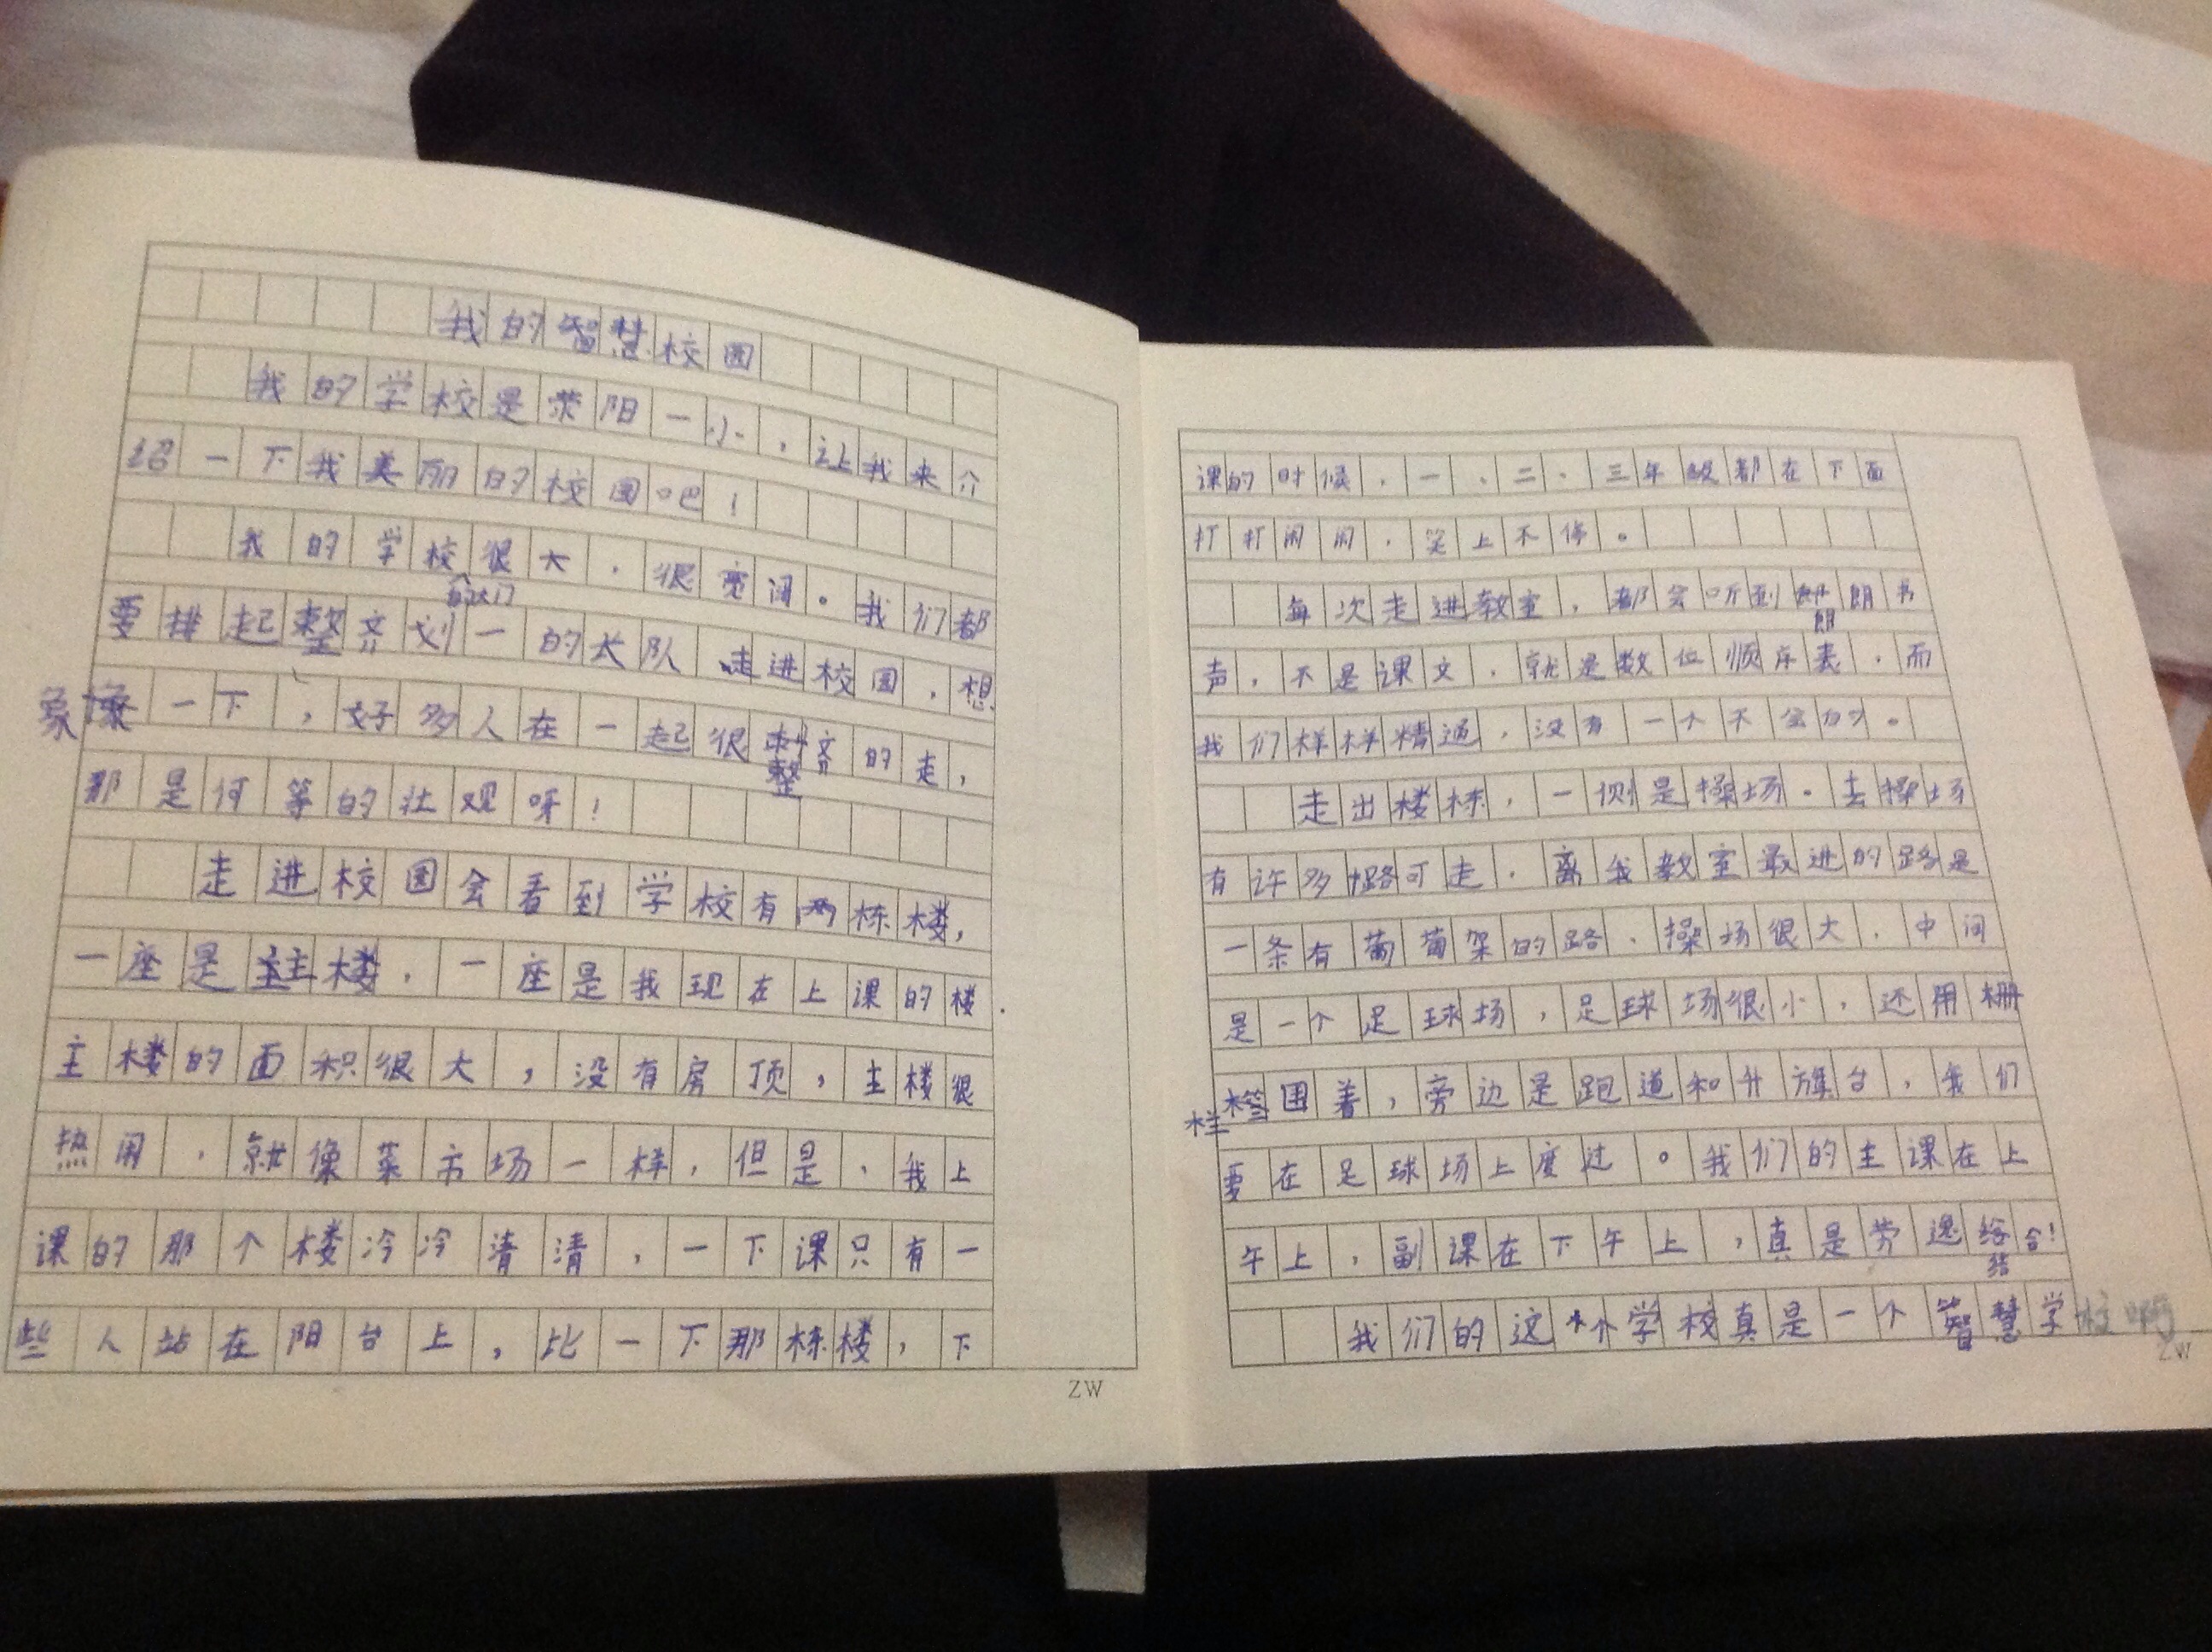 我的智慧校园
我的学校是荥阳一小，让我来介
绍一下我美丽的校园吧！
我的学校的大门很大，很宽阔。我们都
要排起整齐划一的长队走进校园，想
象一下，好多人在一起很整齐的走，
那是何等的壮观呀！
走进校园会看到学校有两栋楼，
一座是主楼，一座是我现在上课的楼.
主楼的面积很大，没有房顶，主楼很
热闹，就像菜市场一样，但是，我上
课的那个楼冷冷清清，一下课只有一
些人站在阳台上，比一下那栋楼，下
ZW
课的时候，一、二、三年级都在下面
打打闹闹，笑上不停。
每次走进教室，都会听到朗朗书
声，不是课文，就是数位顺序表，而
我们样样精通，没有一个不会的。
走出楼栋，一侧是操场。去操场
有许多路可走，离我教室最进的路是
一条有葡萄架的路、操场很大，中间
是一个足球场，足球场很小，还用栅
栏围着，旁边是跑道和升旗台，我们
要在足球场上度过。我们的主课在上
午上，副课在下午上，真是劳逸结合！
我们的这个学校真是一个智慧学校啊
ZW